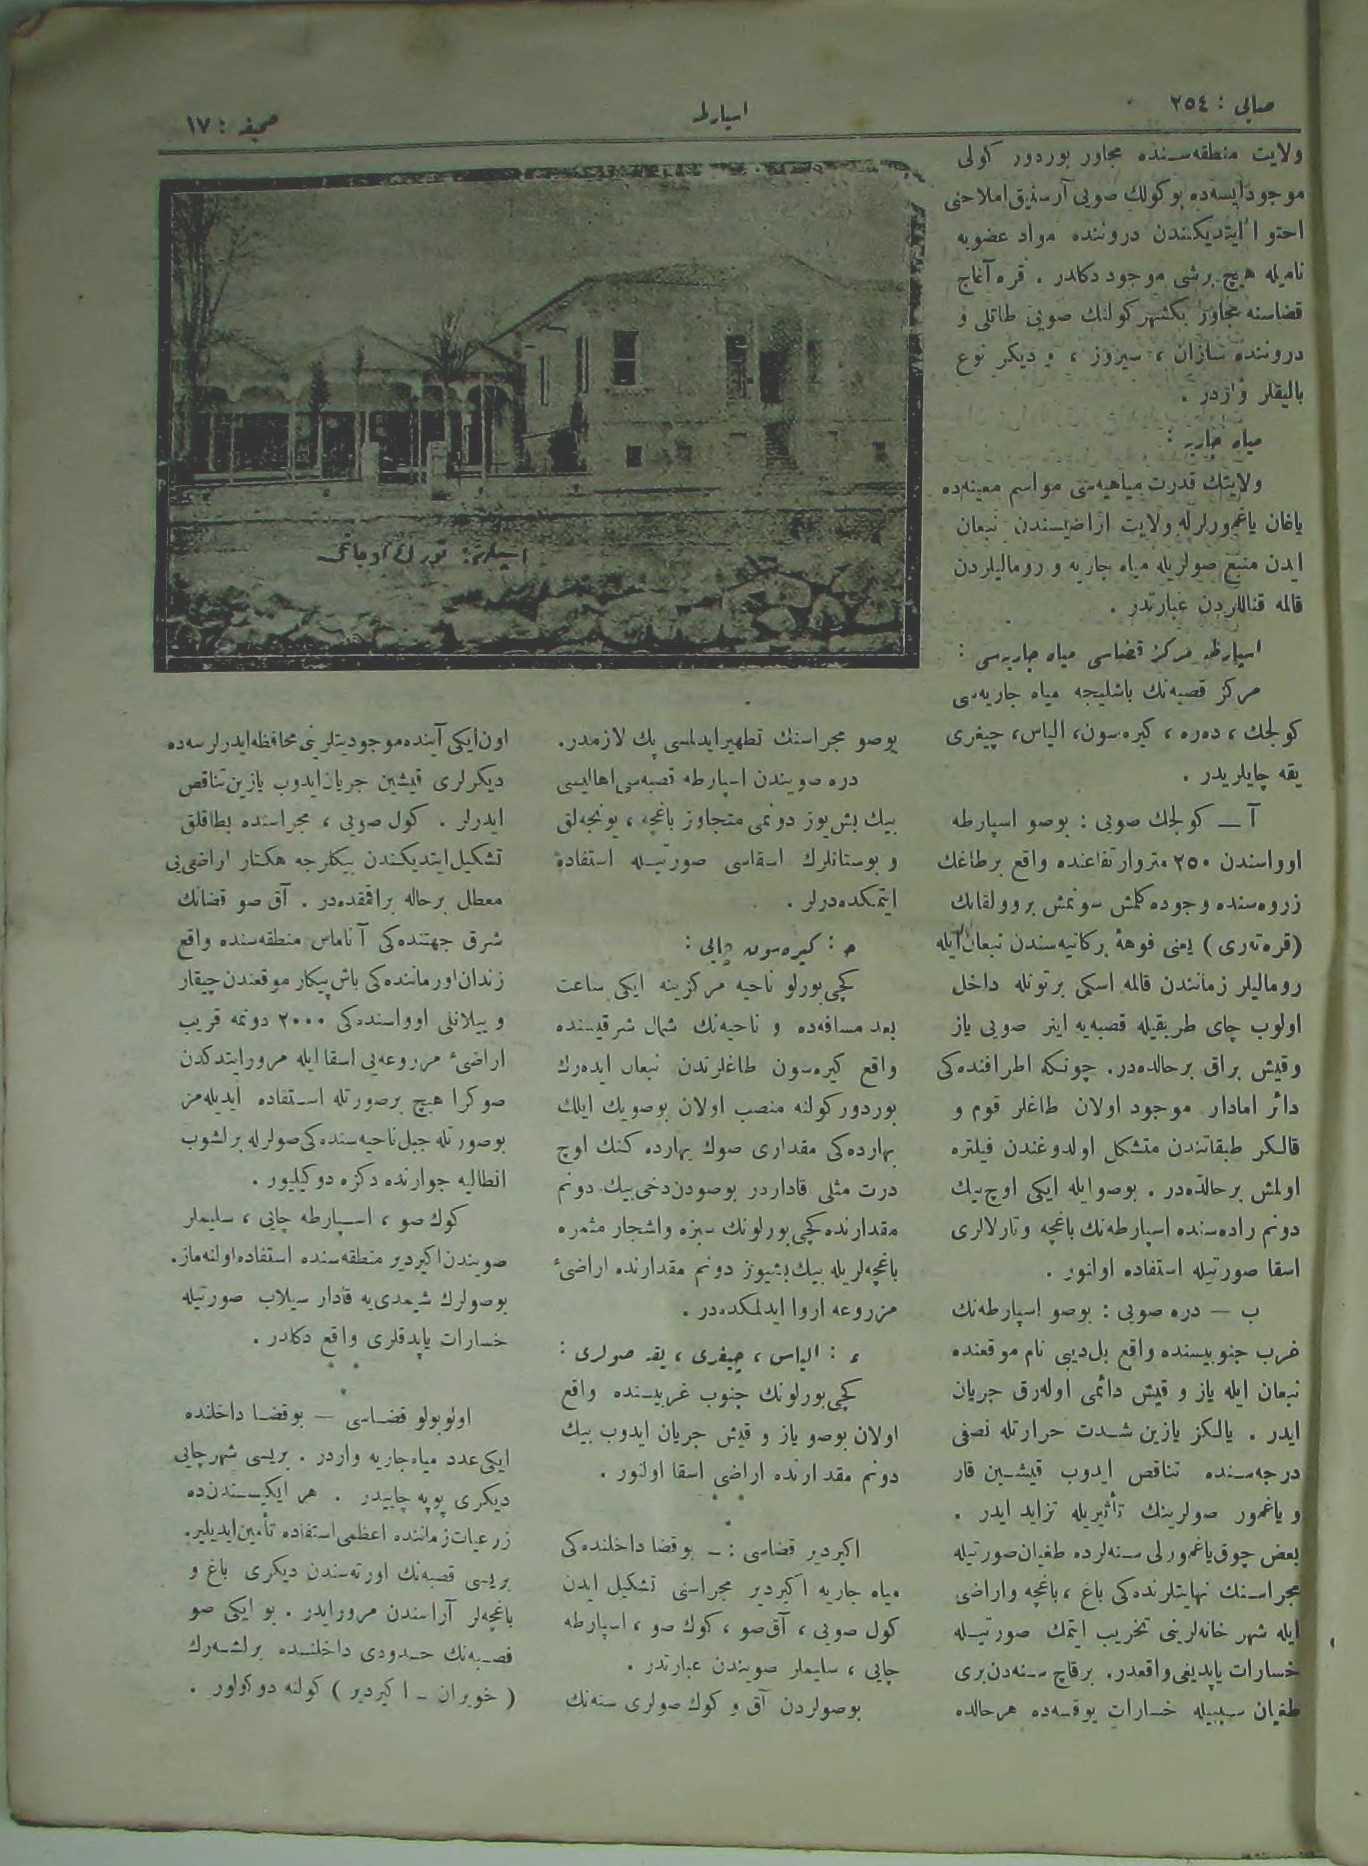 صایی : ٢٥٤
اسپارطه
صحیفه : ١٧
ولایت منطقه‌سنده مجاور بوردور کولی
موجود ایسه‌ده بو کولك صویی آرسنیق املاحنی
احتوا ایتدیکندن دروننده مواد عضویه
نامیله هیچ برشی موجود دکلدر . قره آغاج
قضاسنه مجاور بکشهر کولنك صویی طاتلی و
دروننده سازان ، سیروز ، و دیکر نوع
بالیقلر واردر .
میاه جاریه :
ولایتك قدرت میاهیه‌سی مواسم معینه‌ده
یاغان یاغمورلرله ولایت اراضیسندن نبعان
ایدن منبع صولریله میاه جاریه و رومالیلردن
قالمه قناللردن عبارتدر .
اسپارطه مرکز قضاسی میاه جاریه‌سی :
مرکز قصبه‌نك باشلیجه میاه جاریه‌سی
کولجك ، دەره ، کیره‌سون، الیاس، چیغری
یقه چایلریدر .
آ — کولجك صویی : بوصو اسپارطه
اوواسندن ٢٥٠ متروارتفاعنده واقع برطاغك
زروه‌سنده وجوده کلمش سونمش بروولقانك
(قره‌تەری) یعنی فوههٔ برکانیه‌سندن نبعان ایله
رومالیلر زمانندن قالمه اسکی برتونله داخل
اولوب چای طریقیله قصبه‌یه اینر صویی یاز
وقیش براق برحالده‌در. چونکه اطرافنده‌کی
دائر امادار موجود اولان طاغلر قوم و
قالکر طبقاتندن متشکل اولدوغندن فیلتره
اولمش برحالده‌در . بوصوایله ایکی اوچ بیك
دونم راده‌سنده اسپارطه‌نك باغچه وتارلالری
اسقا صورتیله استفاده اولنور .
ب — دره صویی : بوصو اسپارطه‌نك
غرب جنوبیسنده واقع بل‌دیبی نام موقعنده
نبعان ایله یاز و قیش دائمی اوله‌رق جریان
ایدر . یالکز یازین شدت حرارتله نصفی
درجه‌سنده تناقص ایدوب قیشین قار
و یاغمور صولرینك تأثیریله تزاید ایدر .
بعض چوق یاغمورلی سنه‌لرده طغیان صورتیله
مجراسنك نهایتلرنده‌کی باغ ، باغچه واراضی
ایله شهر خانه‌لرینی تخریب ایتمك صورتیله
خسارات یاپدیغی واقعدر. برقاچ سنه‌دن‌بری
طغیان سببیله خسارات یوقسه‌ده هرحالده
اسپارطه: تورك اوجاغی
بوصو مجراسنك تطهیرایدلمسی پك لازمدر.
دره صویندن اسپارطه قصبه‌سی اهالیسی
بیك بش‌یوز دونمی متجاوز باغچه ، یونجه‌لق
و بوستانلرك اسقاسی صورتیله استفاده
ایتمکده‌درلر .
م : کیره‌سون چایی :
کچی‌بورلو ناحیه مرکزینه ایکی ساعت
بعد مسافه‌ده و ناحیه‌نك شمال شرقیسنده
واقع کیره‌سون طاغلرندن نبعان ایده‌رك
بوردور کولنه منصب اولان بوصویك ایلك
بهارده‌کی مقداری صوك بهارده کنك اوچ
درت مثلی قاداردر بوصودن‌دخی بیك دونم
مقدارنده کچی‌بورلونك سبزه واشجار مثمره
باغچه‌لریله بیك بشیوز دونم مقدارنده اراضیٔ
مزروعه اروا ایدلمکده‌در .
ء : الیاس ، چیغری ، یقه صولری :
کچی‌بورلونك جنوب غربیسنده واقع
اولان بوصو یاز و قیش جریان ایدوب بیك
دونم مقدارنده اراضی اسقا اولنور .
* * *
اکیردیر قضاسی : ــ بوقضا داخلنده‌کی
میاه جاریه اکیردیر مجراسنی تشکیل ایدن
کول صویی ، آق‌صو ، کوك صو ، اسپارطه
چایی ، سلیملر صویندن عبارتدر .
بوصولردن آق و کوك صولری سنه‌نك
اون‌ایکی آینده موجودیتلرینی محافظه‌ایدرلرسه‌ده
دیکرلری قیشین جریان‌ایدوب یازین تناقص
ایدرلر . کول صویی ، مجراسنده بطاقلق
تشکیل ایتدیکندن بیکلرجه هکتار اراضی‌یی
معطل برحاله براقمقده‌در . آق صو قضانك
شرق جهتنده‌کی آناماس منطقه‌سنده واقع
زندان اورماننده‌کی باش پیکار موقعندن چیقار
و ییلانلی اوواسنده‌کی ٢٠٠٠ دونمه قریب
اراضیٔ مزروعه‌یی اسقا ایله مرورایتدکدن
صوکرا هیچ برصورتله استفاده ایدیله‌مز
بوصورتله جبل ناحیه‌سنده‌کی صولرله برلشوب
انطالیه جوارنده دکزه دوکیلیور .
کوك صو ، اسپارطه چایی ، سلیملر
صویندن اکیردیر منطقه‌سنده استفاده اولنه‌ماز.
بوصولرك شیمدی‌یه قادار سیلاب صورتیله
خسارات یاپدقلری واقع دکلدر .
* * *
اولوبولو قضاسی — بوقضا داخلنده
ایکی عدد میاه جاریه واردر . بریسی شهرچایی
دیکری پوپه چاییدر . هر ایکیسندن‌ده
زرعیات زماننده اعظمی استفاده تأمین ایدیلیر.
بریسی قصبه‌نك اورته‌سندن دیکری باغ و
باغچه‌لر آراسندن مرورایدر . بو ایکی صو
قصبه‌نك حدودی داخلنده برلشه‌رك
( خویران ـ اکیردیر ) کولنه دوکولور .